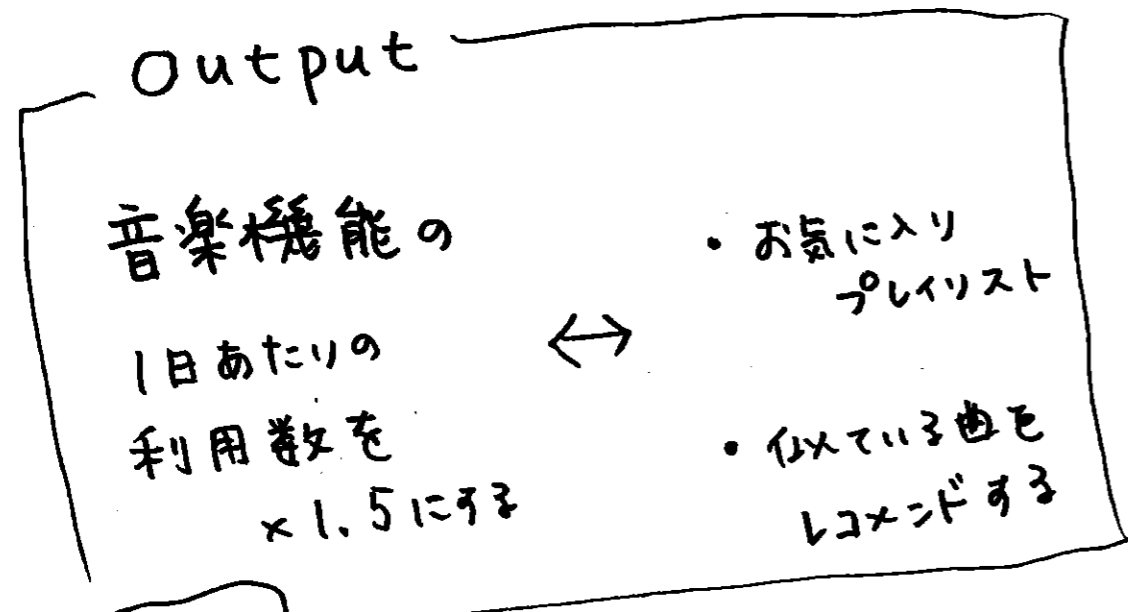 Output
音楽機能の
1日あたりの
利用数を
×1.5にする
↔
・お気に入り
プレイリスト
・似ている曲を
レコメンドする